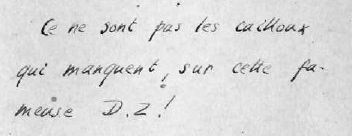 Ce ne sont pas les cailloux
qui manquent, sur cette fa-
meuse D.Z!